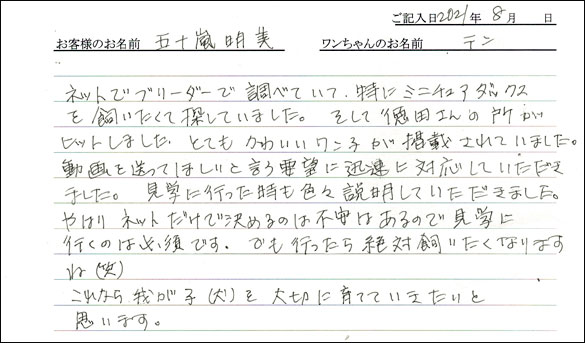 ご記入日2021年 8月 日
お客様のお名前 五十嵐明美 ワンちゃんのお名前 テン
ネットでブリーダーで調べていて、特にミニチュアダックス
を飼いたくて探していました。そして徳田さんの所が
ヒットしました。とてもかわいいワン子が掲載されていました。
動画を送ってほしいと言う要望に迅速に対応していただき
ました。見学に行った時も色々説明していただきました。
やはりネットだけで決めるのは不安はあるので見学に
行くのは必須です。でも行ったら絶対飼いたくなります
ね(笑)
これなら我が子(犬)を大切に育てていきたいと
思います。